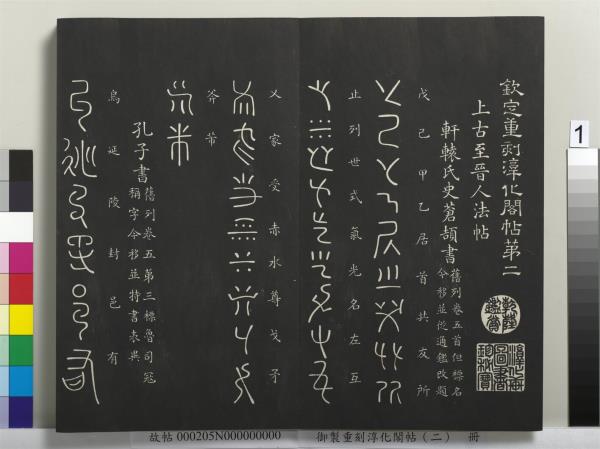 欽定重刻淳化閣帖第二
上古至晉人法帖
軒轅氏史蒼頡書
舊列卷五首但標名
今移並從通鑑改題
戊己甲乙居首共友所
止列世式氣光名左互
乂家受赤水尊戈矛
斧芾
孔子書
舊列卷五第三標魯司寇
稱字今移並特書表異
烏延陵封邑有
淳化軒
圖書
珍秘寶
1
故帖 000205N000000000 御製重刻淳化閣帖(二) 冊